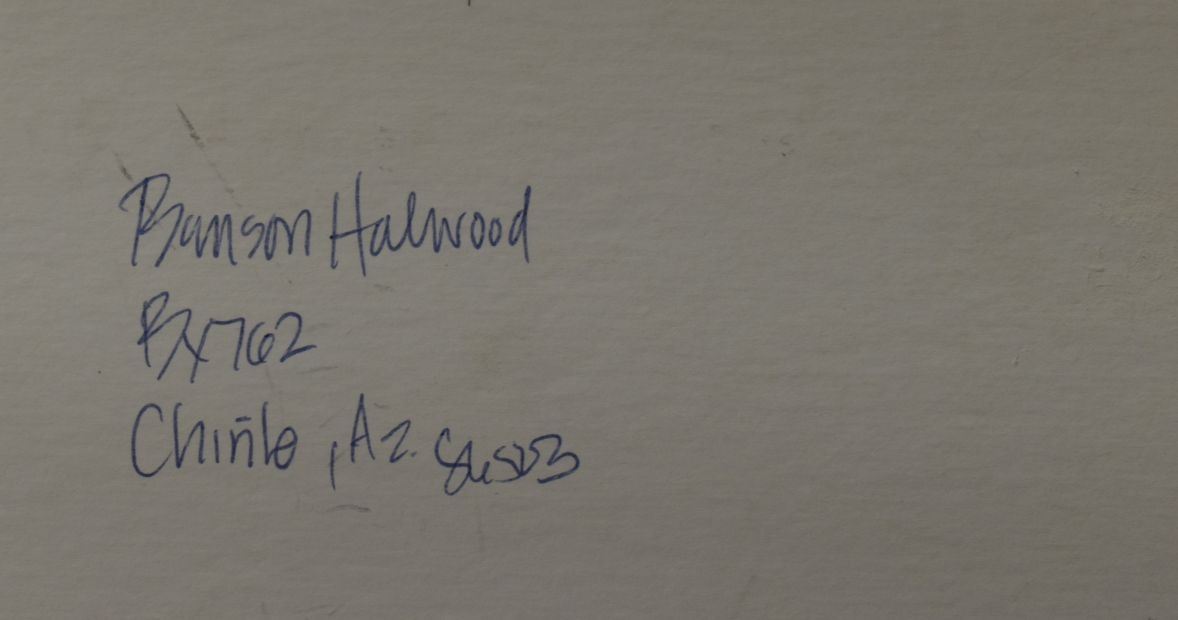 Banson Halwood
Bx 762
Chinle, Az. 86503